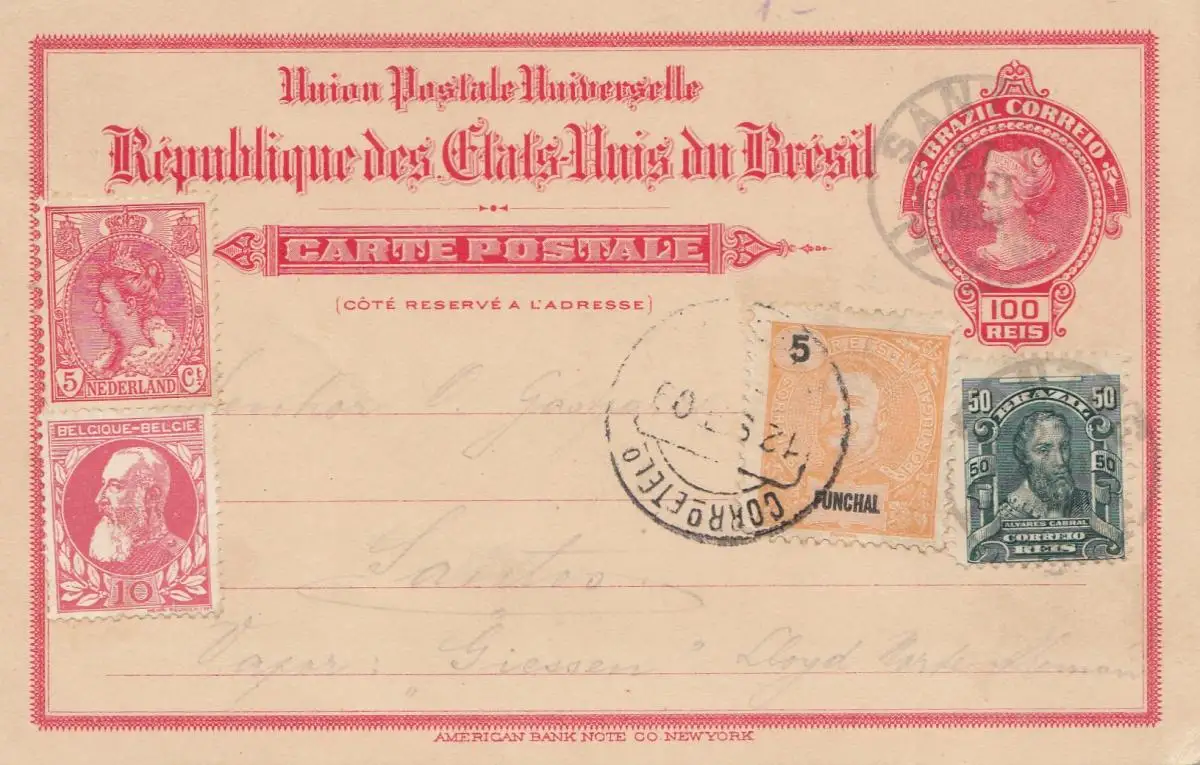 Union Postale Universelle
République des Etats-Unis du Brésil
CARTE POSTALE
(CÔTÉ RESERVÉ A L'ADRESSE)
BRAZIL CORREIO
100
REIS
SAN
5 NEDERLAND Ct
BELGIQUE-BELGIE
10
5
FUNCHAL
12 09
CORRO E TELO
50 BRAZIL 50
50 50
ALVARES CABRAL
CORREIO
REIS
Santos
Vapor: "Giessen" Lloyd Norte
AMERICAN BANK NOTE CO. NEW YORK